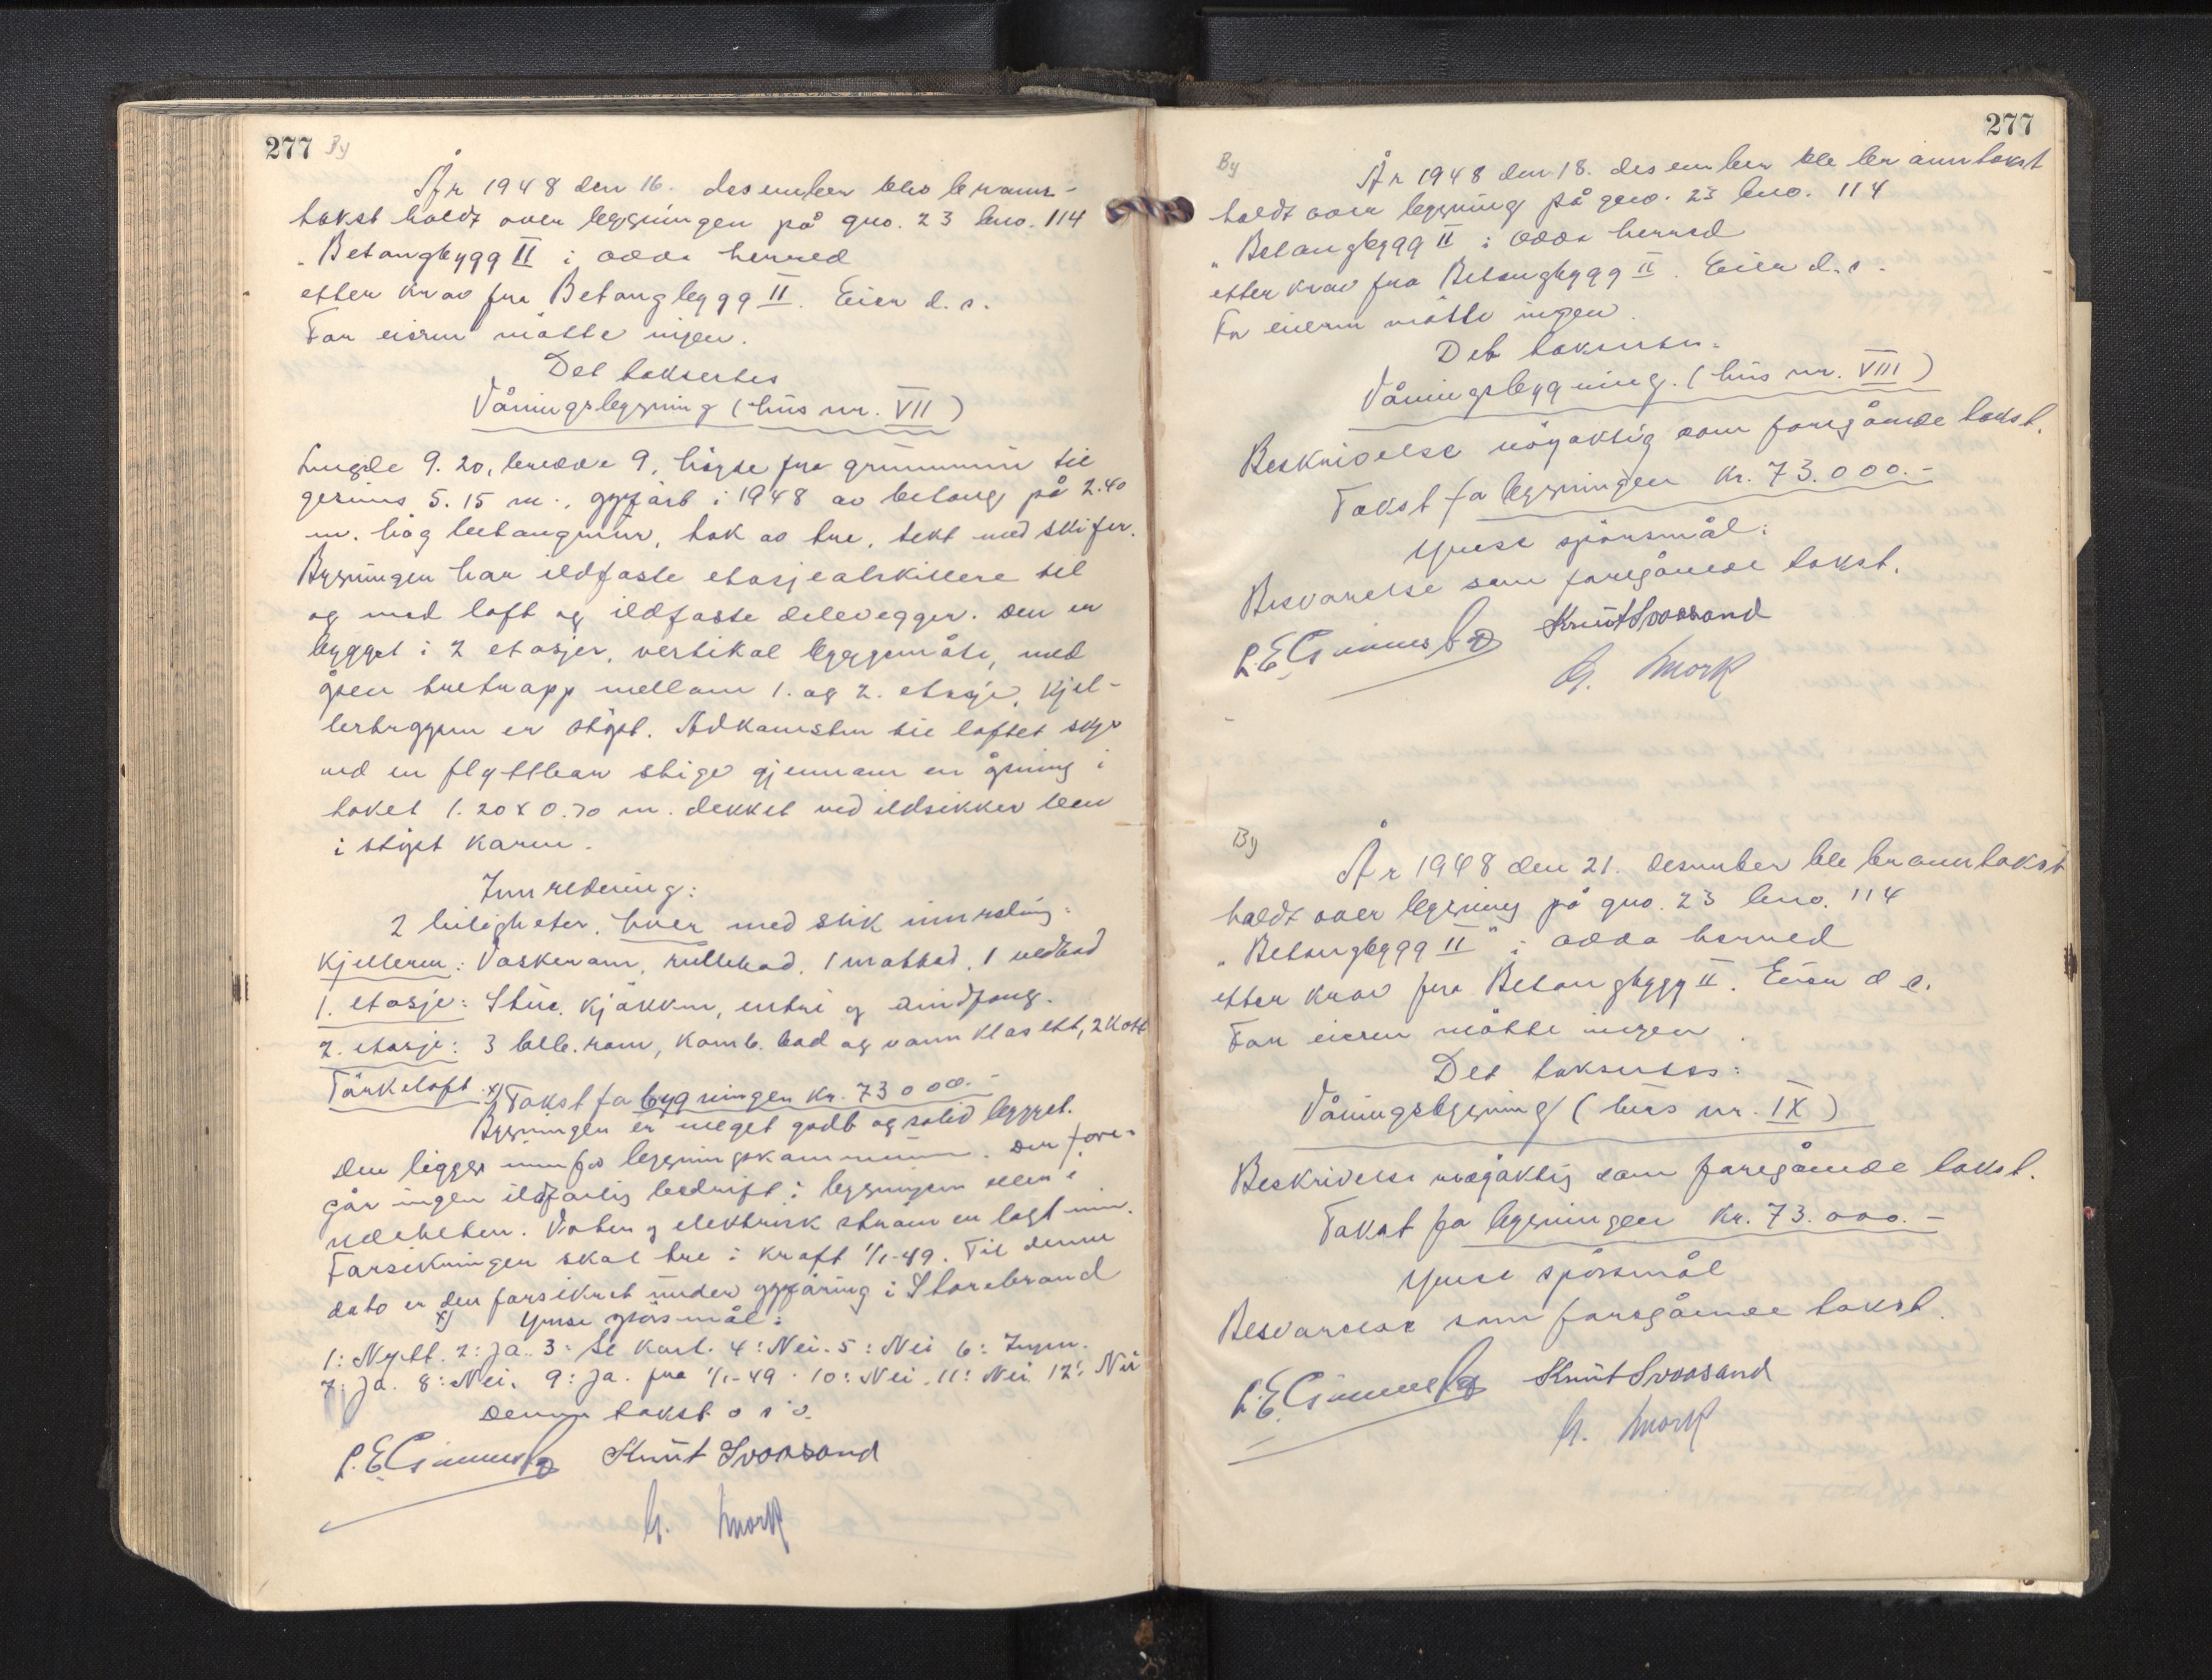 277 By
År 1948 den 16. desember blev brann-
takst holdt over bygningen på gno. 23 bno. 114
"Betongbygg II i Odda herred
etter krav fra Betongbygg II. Eier d.s.
For eieren møtte ingen.
Det taksertes
Våningsbygning (hus nr. VII)
Lengde 9.20, bredde 9, høgde fra grunnmur til
gesims 5.15 m., oppført i 1948 av betong på 2.40
m. høg betongmur, tak av tre, tekt med skifer.
Bygningen har ildfaste etasjeatskillere til
og med loft og ildfaste delevegger. Den er
bygget i 2 etasjer, vertikal byggemåte, med
åpen tretrapp mellom 1. og 2. etasje, kjel-
lertrappen er støpt. Adkomsten til loftet skjer
ved en flyttbar stige gjennom en åpning i
taket 1.20 x 0.70 m. dekket ved ildsikker lem
i støpt karm.
Innredning:
2 leiligheter, hver med slik innredning:
Kjelleren: Vaskerom, rullebod, 1 matbod, 1 vedbod
1. etasje: Stue, kjøkken, entré og vindfang.
2. etasje: 3 bebo. rom, komb. bad og vannklosett, 2 kott
Tørkeloft. x) Takst for bygningen kr. 73000.-
Bygningen er meget godt og solid bygget.
Den ligger innafor bygningskommunen. Der fore-
går ingen ildfarlig bedrift i bygningen eller i
nærheten. Vaten og elektrisk strøm er lagt inn.
Forsikringen skal tre i kraft 1/1-49. Til denne
dato er den forsikret under oppføring i Storebrand
x) Ymse spørsmål:
1: Nytt. 2: Ja. 3: Se kart. 4: Nei. 5: Nei 6: Ingen.
7: Ja. 8: Nei. 9: Ja. fra 1/1-49. 10: Nei. 11: Nei 12: Nei
Denne takst
Knut Svaasand
G. Mork

277
By
År 1948 den 18. desember ble branntakst
holdt over bygning på gno. 23 bno. 114
"Betongbygg II i Odda herred
etter krav fra Betongbygg II. Eier d.s.
For eieren møtte ingen.
Det takseres:
Våningsbygning. (hus nr. VIII)
Beskrivelse nøyaktig som foregående takst.
Takst for bygningen kr. 73.000.-
Ymse spørsmål:
Besvarelse som foregående takst.
Knut Svaasand
G. Mork

By
År 1948 den 21. desember ble branntakst
holdt over bygning på gno. 23 bno. 114
"Betongbygg II" i Odda herred
etter krav fra Betongbygg II. Eier d.s.
For eieren møtte ingen.
Det takseres:
Våningsbygning (hus nr. IX)
Beskrivelse nøyaktig som foregående takst.
Takst for bygningen kr. 73.000.-
Ymse spørsmål
Besvarelse som foregående takst.
Knut Svaasand
G. Mork